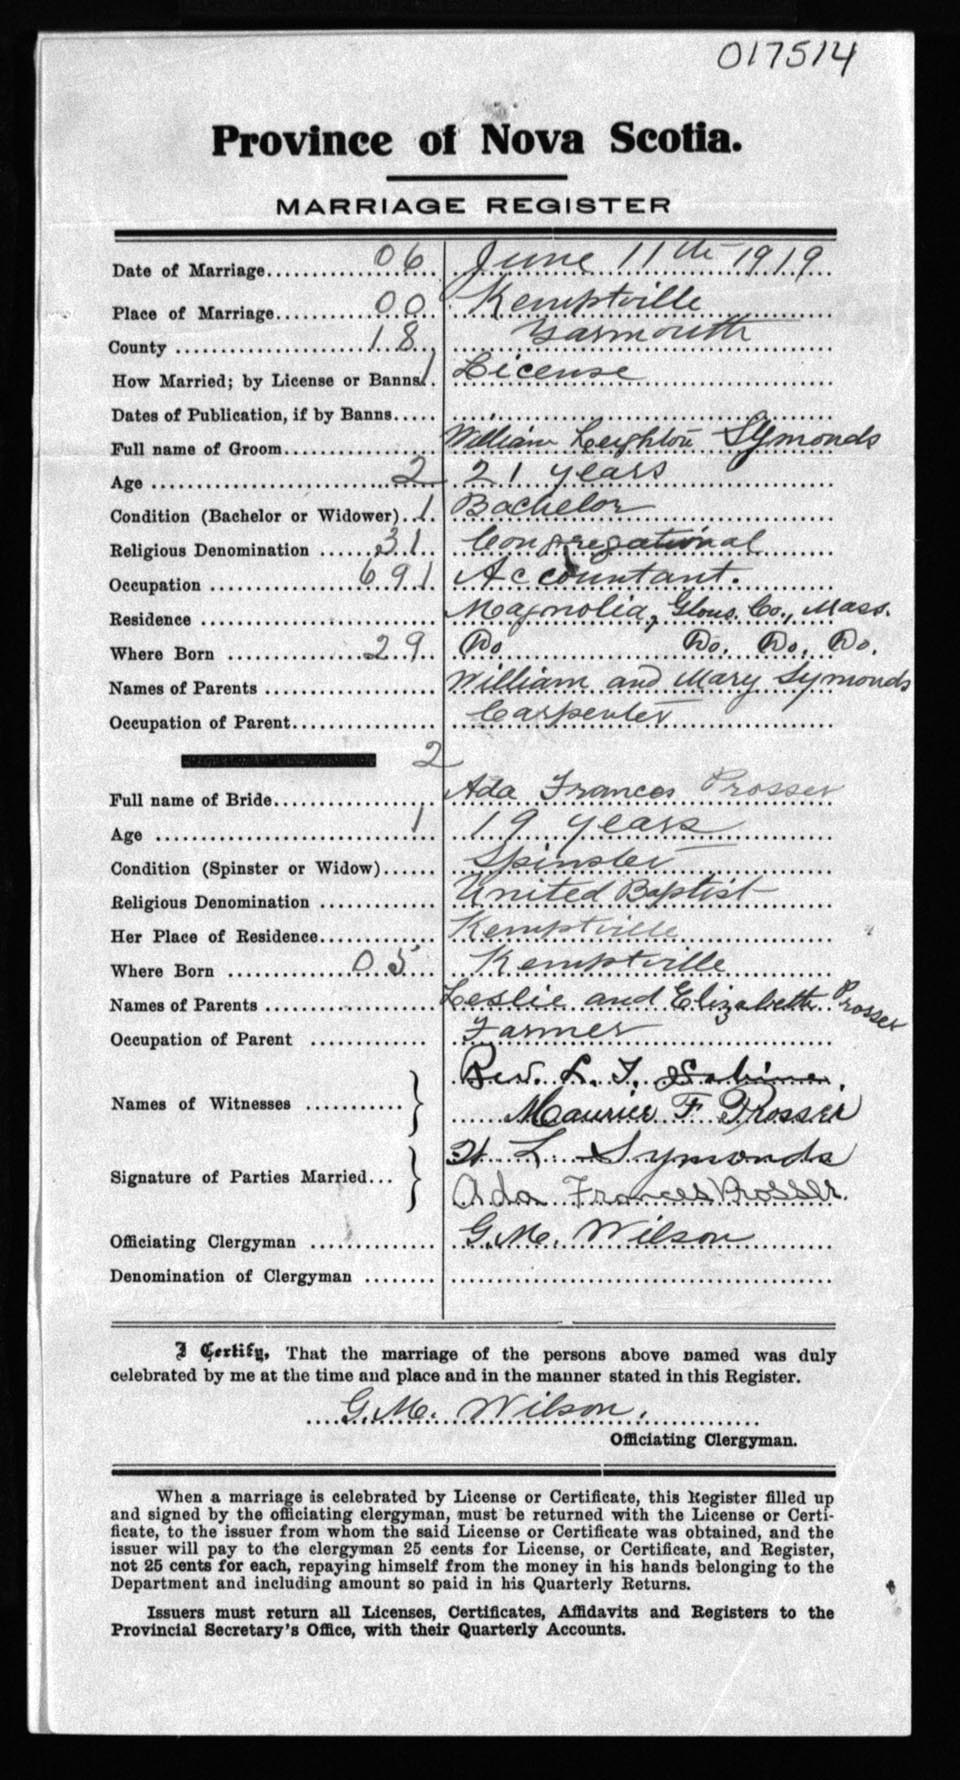 017514
Province of Nova Scotia.
MARRIAGE REGISTER
Date of Marriage 06 June 11th 1919
Place of Marriage 00 Kemptville
County 18 Yarmouth
How Married; by License or Banns 1 License
Dates of Publication, if by Banns
Full name of Groom William Leighton Symonds
Age 2 21 years
Condition (Bachelor or Widower) 1 Bachelor
Religious Denomination 31 Congregational
Occupation 691 Accountant.
Residence Magnolia, Glous. Co., Mass.
Where Born 29 Do Do. Do. Do.
Names of Parents William and Mary Symonds
Occupation of Parent Carpenter
2
Full name of Bride Ada Frances Prosser
Age 1 19 years
Condition (Spinster or Widow) Spinster
Religious Denomination United Baptist
Her Place of Residence Kemptville
Where Born 05 Kemptville
Names of Parents Leslie and Elizabeth Prosser
Occupation of Parent Farmer
Rev. L. T.
Names of Witnesses
Maurice F Prosser
L Symonds
Signature of Parties Married
Ada Frances Prosser.
Officiating Clergyman G.M. Wilson
Denomination of Clergyman
I Certify, That the marriage of the persons above named was duly
celebrated by me at the time and place and in the manner stated in this Register.
G.M. Wilson.
Officiating Clergyman.
When a marriage is celebrated by License or Certificate, this Register filled up
and signed by the officiating clergyman, must be returned with the License or Certi-
ficate, to the issuer from whom the said License or Certificate was obtained, and the
issuer will pay to the clergyman 25 cents for License, or Certificate, and Register,
not 25 cents for each, repaying himself from the money in his hands belonging to the
Department and including amount so paid in his Quarterly Returns.
Issuers must return all Licenses, Certificates, Affidavits and Registers to the
Provincial Secretary's Office, with their Quarterly Accounts.